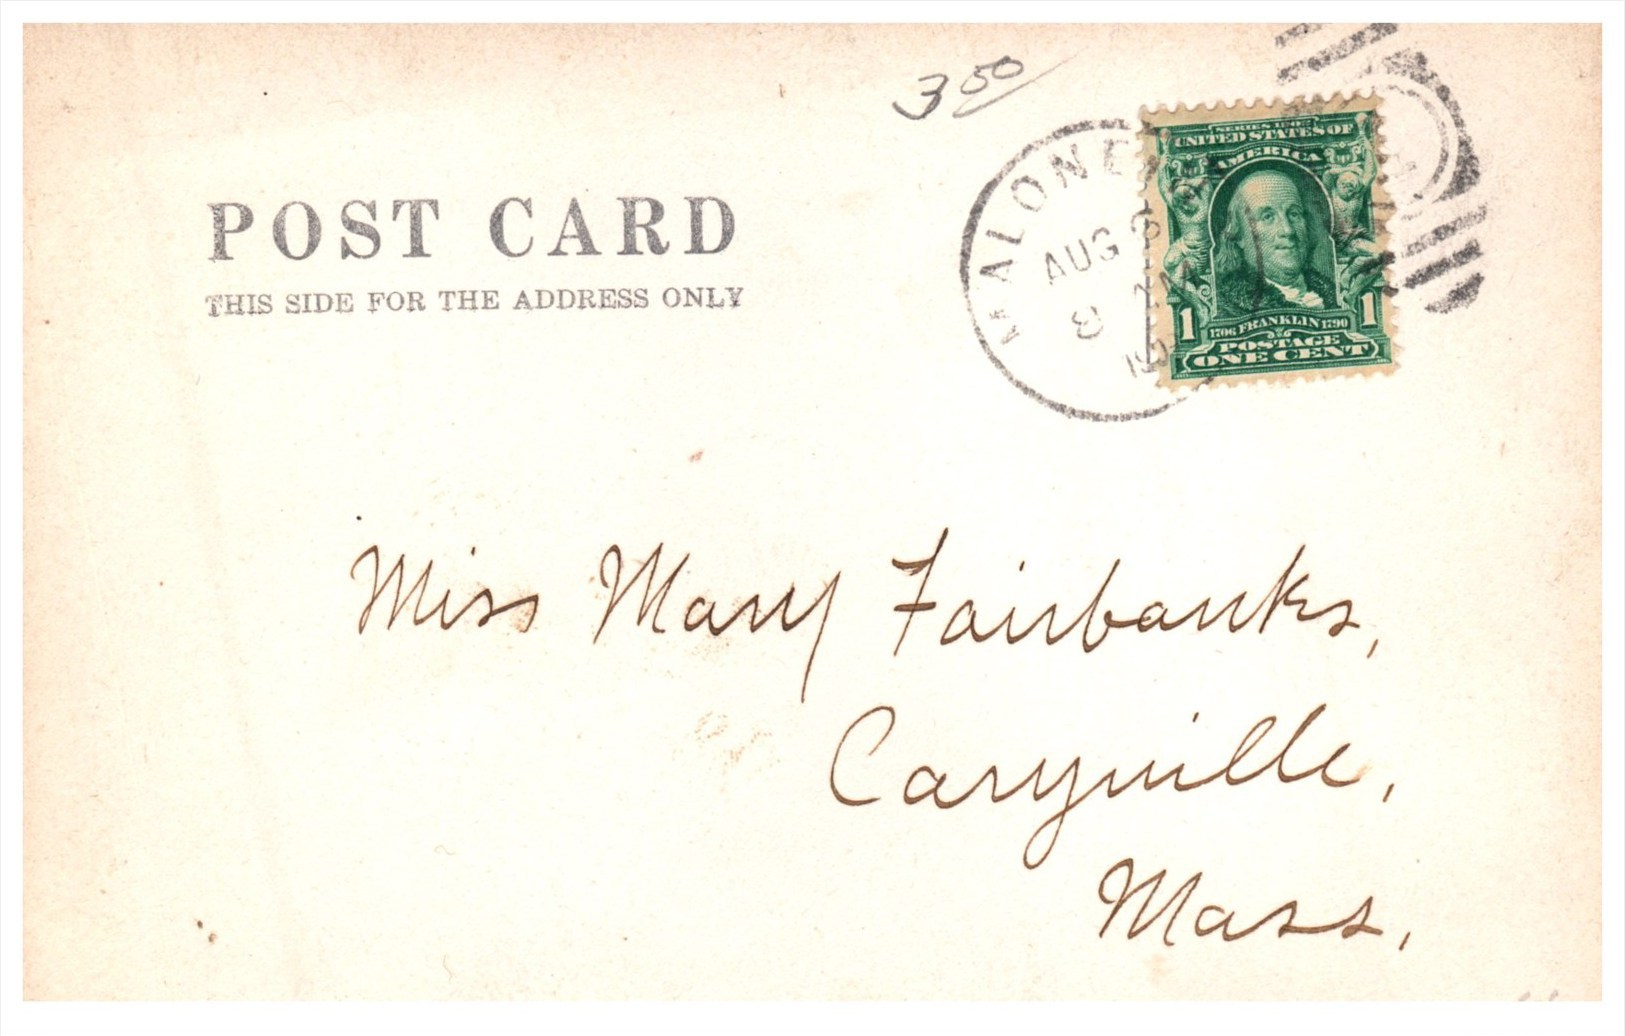 3 50
POST CARD
THIS SIDE FOR THE ADDRESS ONLY
MALONE
AUG 3
8 AM
SERIES 1902
UNITED STATES OF
AMERICA
1 1
1706 FRANKLIN 1790
POSTAGE
ONE CENT
Miss Mary Fairbanks,
Caryville,
Mass,